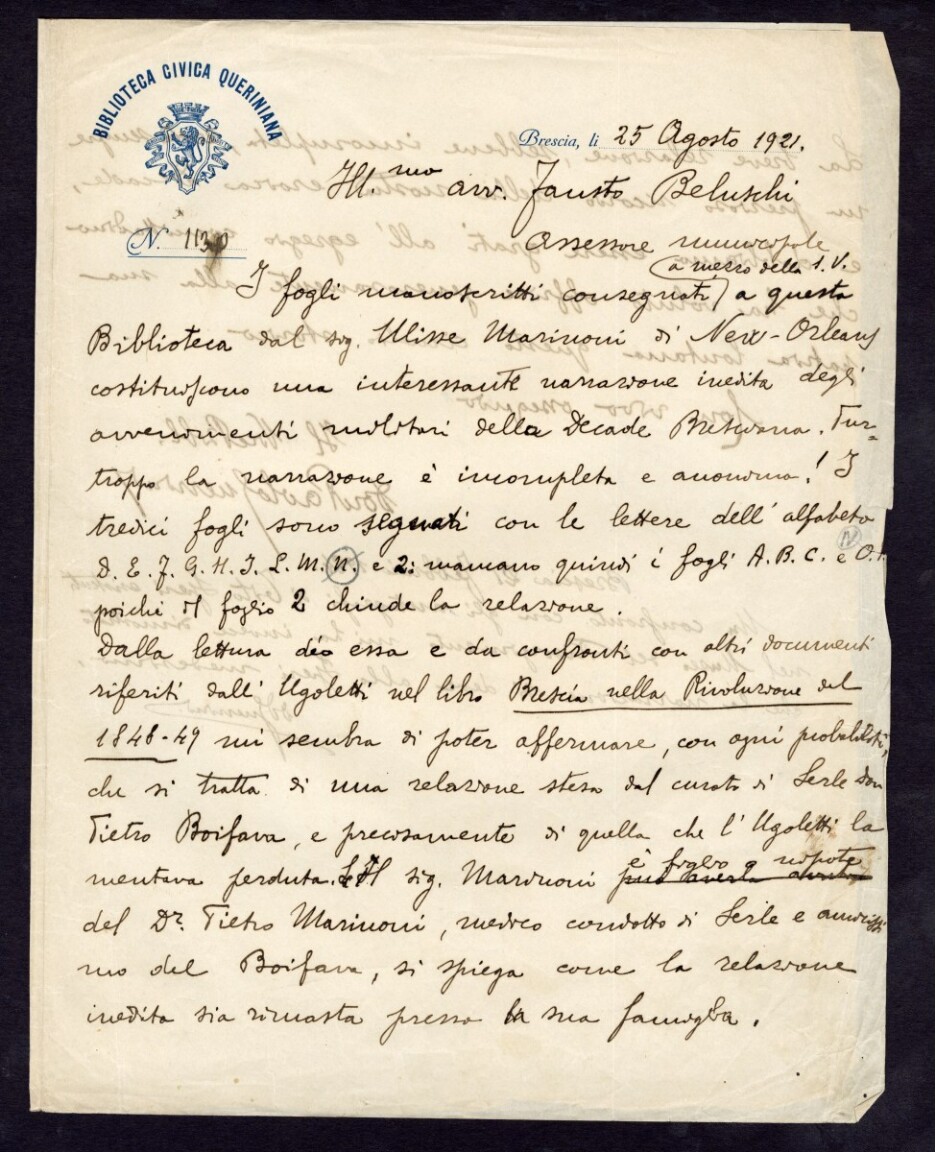 BIBLIOTECA CIVICA QUERINIANA
Brescia, li 25 Agosto 1921.
Ill.mo avv. Fausto Beluschi
N. 1130
Assessore municipale
(a mezzo della S. V.
I fogli manoscritti consegnati) a questa
Biblioteca dal sig. Ulisse Marinoni di New-Orleans
costituiscono una interessante narrazione inedita degli
avvenimenti militari della Decade Bresciana. Pur-
troppo la narrazione è incompleta e anonima! I
tredici fogli sono segnati con le lettere dell'alfabeto
D. E. F. G. H. I. L. M. N. e 2: mancano quindi i fogli A. B. C. e O.
poichè il foglio 2 chiude la relazione.
Dalla lettura di essa e da confronti con altri documenti
riferiti dall'Ugoletti nel libro Brescia nella Rivoluzione del
1848-49 mi sembra di poter affermare, con ogni probabilità,
che si tratta di una relazione stesa dal curato di Serle Don
Pietro Boifava, e precisamente di quella che l'Ugoletti la
mentava perduta. Il sig. Marinoni
è figlio o nipote
del Dr. Pietro Marinoni, medico condotto di Serle e amicissi
mo del Boifava, si spiega come la relazione
inedita sia rimasta presso la sua famiglia.